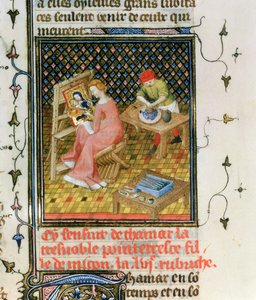 grans
ces seulent venir de cœur qui
meurent
Cy sensuit de thamar la
tresnoble pointeresse fil
le de micon. la rubriche.
Thamar en so
temps et en so